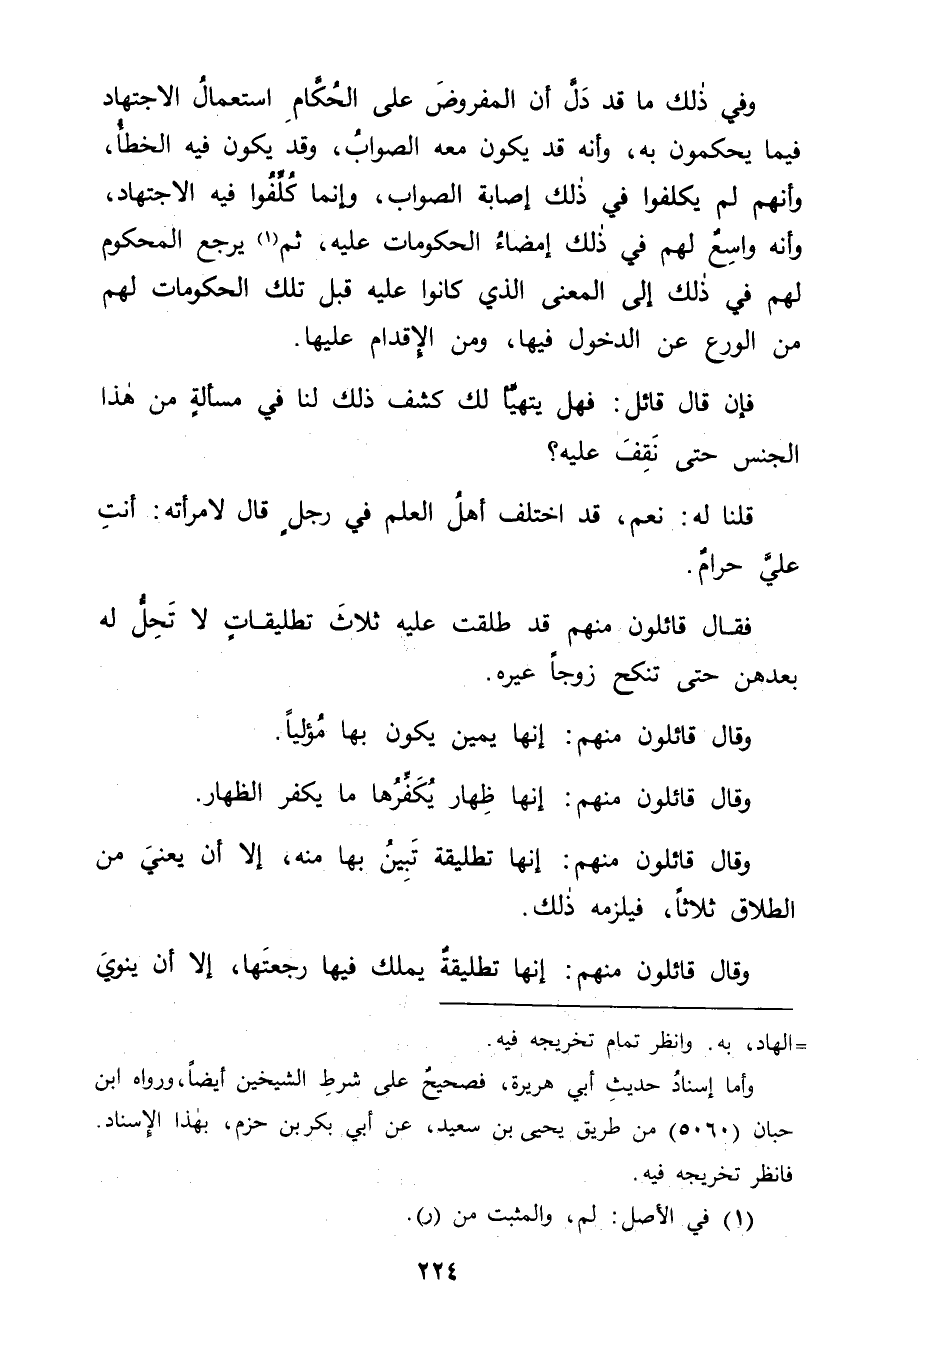 وفي ذٰلك ما قد دَلَّ أن المفروضَ على الحُكَّامِ استعمالُ الاجتهاد
فيما يحكمون به، وأنه قد يكون معه الصوابُ، وقد يكون فيه الخطأُ،
وأنهم لم يكلفوا في ذٰلك إصابة الصواب، وإنما كُلِّفُوا فيه الاجتهاد،
وأنه واسِعٌ لهم في ذٰلك إمضاءُ الحكومات عليه، ثم(١) يرجع المحكوم
لهم في ذٰلك إلى المعنى الذي كانوا عليه قبل تلك الحكومات لهم
من الورع عن الدخول فيها، ومن الإقدام عليها.
فإن قال قائل: فهل يتهيَّأ لك كشف ذلك لنا في مسألةٍ من هٰذا
الجنس حتى نَقِفَ عليه؟
قلنا له: نعم، قد اختلف أهلُ العلم في رجلٍ قال لامرأته: أنتِ
عليَّ حرامٌ.
فقال قائلون منهم قد طلقت عليه ثلاثَ تطليقاتٍ لا تَحِلُّ له
بعدهن حتى تنكح زوجاً عيره.
وقال قائلون منهم: إنها يمين يكون بها مُؤلياً.
وقال قائلون منهم: إنها ظِهار يُكَفِّرُها ما يكفر الظهار.
وقال قائلون منهم: إنها تطليقة تَبِينُ بها منه، إلا أن يعنيَ من
الطلاق ثلاثاً، فيلزمه ذٰلك.
وقال قائلون منهم: إنها تطليقةٌ يملك فيها رجعتَها، إلا أن ينويَ
=الهاد، به. وانظر تمام تخريجه فيه.
وأما إسنادُ حديثِ أبي هريرة، فصحيحٌ على شرطِ الشيخين أيضاً، ورواه ابن
حبان (٥٠٦٠) من طريق يحيى بن سعيد، عن أبي بكر بن حزم، بهٰذا الإسناد.
فانظر تخريجه فيه.
(١) في الأصل: لم، والمثبت من (ر).
٢٢٤